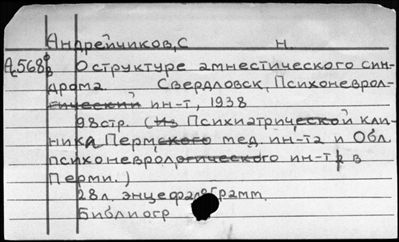 Андрейчиков, С Н.
А568 О структуре амнестического син-
дрома Свердловск, Психоневрол-
огический ин-т, 1938
98стр. (Из Психиатрической кли-
ника Пермского мед. ин-та и Обл.
психоневрологического ин-та в
Перми.)
28л. энцефалограмм.
Библиогр